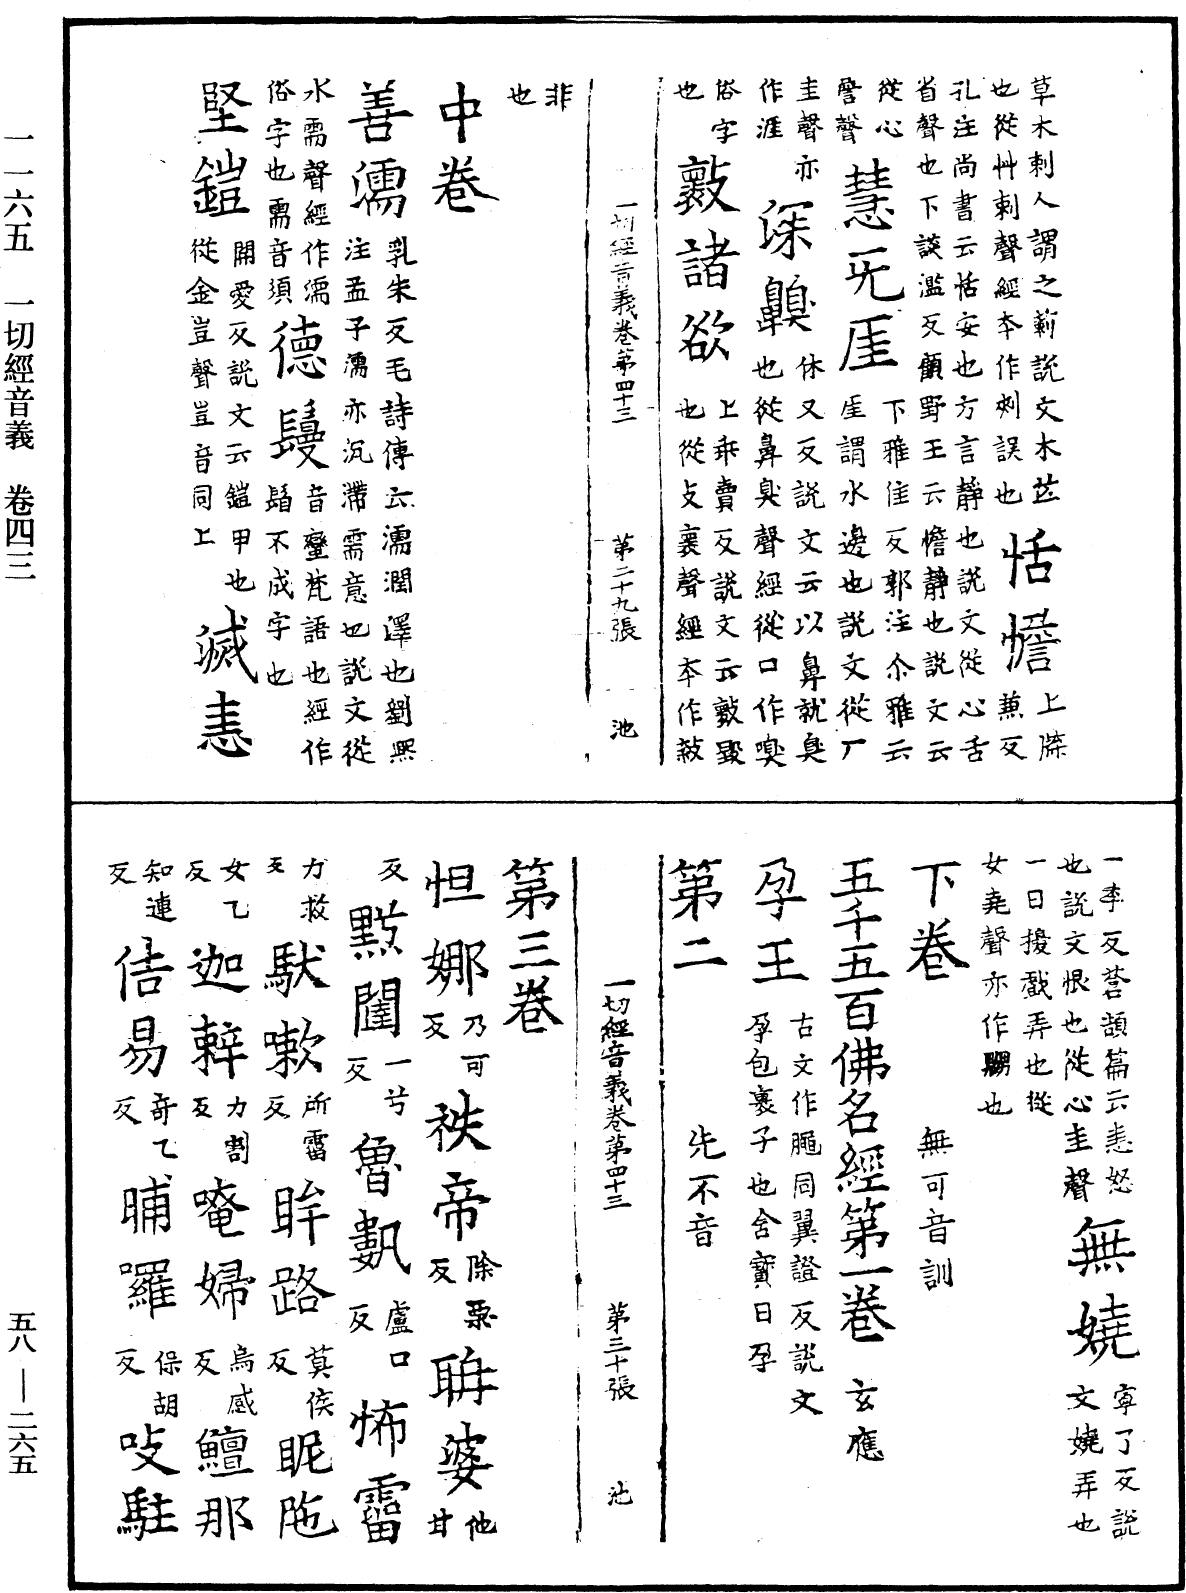 一一六五　一切經音義　卷四三
草木剌人謂之莿說文木芒
也從艸剌聲經本作刺誤也
恬憺
上牒
蒹反
孔注尚書云恬安也方言靜也說文從心舌
省聲也下談濫反顧野王云憺靜也說文云
從心
詹聲
慧无厓
下雅佳反郭注尒雅云
厓謂水邊也說文從厂
圭聲亦
作涯
深齅
休又反說文云以鼻就臭
也從鼻臭聲經從口作嗅
俗字
也
敪諸欲
上乖賣反說文云敪毀
也從攴褱聲經本作敍
一切經音義卷第四十三　第二十九張　池
非
也
中卷
善濡
乳朱反毛詩傳云濡潤澤也劉熙
注孟子濡亦沉滯需意也說文從
水需聲經作濡
俗字也需音須
德鬘
音蠻梵語也經作
䰅不成字也
堅鎧
開愛反說文云鎧甲也
從金豈聲豈音同上
滅恚
一季反蒼頡篇云恚怒
也說文恨也從心圭聲
無嬈
寧了反說
文嬈弄也
一曰擾戲弄也從
女堯聲亦作嬲也
下卷　無可音訓
五千五百佛名經第一卷　玄應
孕王
古文作𦣡同翼證反說文
孕包裹子也含實曰孕
第二　先不音
一切經音義卷第四十三　第三十張　池
第三卷
怛娜
乃可
反
袟帝
除栗
反
聃婆
他
甘
反
㸃閨
一兮
反
魯𣫍
盧口
反
怖霤
力救
反
馱嗽
所霤
反
眸路
莫侯
反
眤陁
女乙
反
迦𨐓
力割
反
唵婦
烏感
反
鱣那
知連
反
佶易
奇乙
反
哺囉
保胡
反
吱駐
五八—二六五